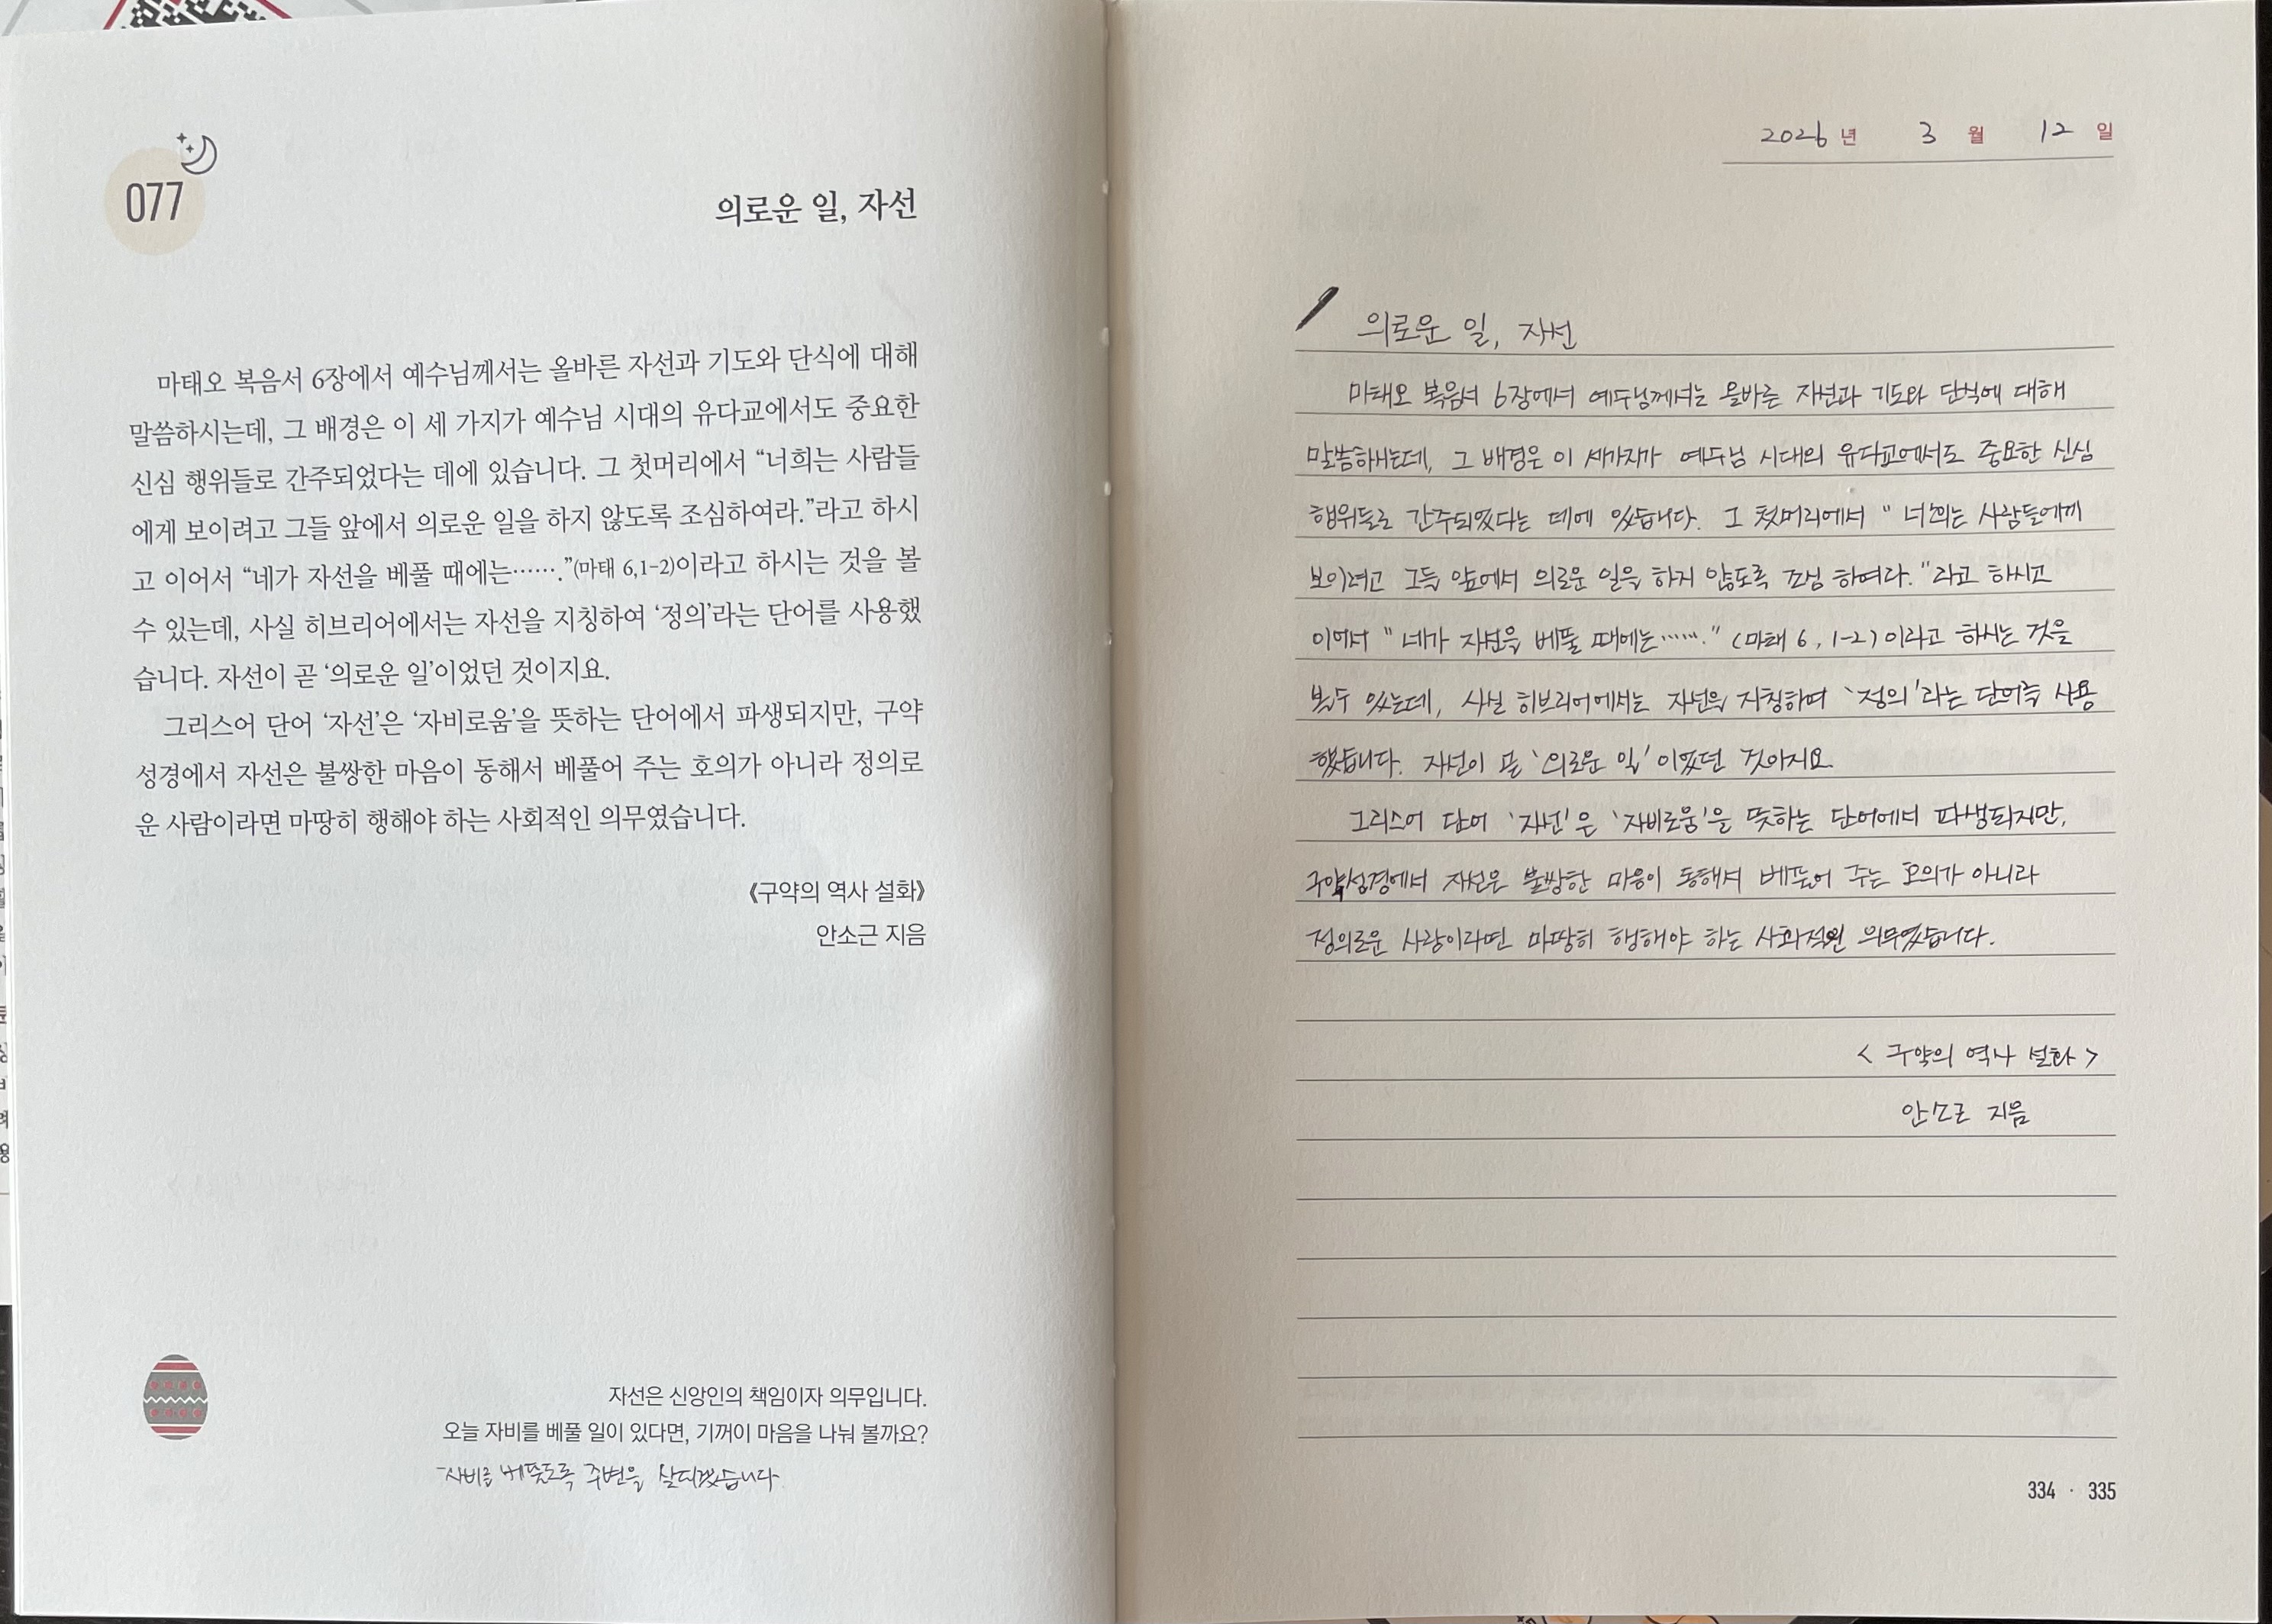 077
의로운 일, 자선
마태오 복음서 6장에서 예수님께서는 올바른 자선과 기도와 단식에 대해
말씀하시는데, 그 배경은 이 세 가지가 예수님 시대의 유다교에서도 중요한
신심 행위들로 간주되었다는 데에 있습니다. 그 첫머리에서 “너희는 사람들
에게 보이려고 그들 앞에서 의로운 일을 하지 않도록 조심하여라.”라고 하시
고 이어서 “네가 자선을 베풀 때에는…….”(마태 6,1-2)이라고 하시는 것을 볼
수 있는데, 사실 히브리어에서는 자선을 지칭하여 ‘정의’라는 단어를 사용했
습니다. 자선이 곧 ‘의로운 일’이었던 것이지요.
그리스어 단어 ‘자선’은 ‘자비로움’을 뜻하는 단어에서 파생되지만, 구약
성경에서 자선은 불쌍한 마음이 동해서 베풀어 주는 호의가 아니라 정의로
운 사람이라면 마땅히 행해야 하는 사회적인 의무였습니다.
《구약의 역사 설화》
안소근 지음
자선은 신앙인의 책임이자 의무입니다.
오늘 자비를 베풀 일이 있다면, 기꺼이 마음을 나눠 볼까요?
자비를 베풀도록 주변을 살피겠습니다
2026년 3월 12일
의로운 일, 자선
마태오 복음서 6장에서 예수님께서는 올바른 자선과 기도와 단식에 대해
말씀하시는데, 그 배경은 이 세가지가 예수님 시대의 유다교에서도 중요한 신심
행위들로 간주되었다는 데에 있습니다. 그 첫머리에서 “너희는 사람들에게
보이려고 그들 앞에서 의로운 일을 하지 않도록 조심 하여라.”라고 하시고
이어서 “네가 자선을 베풀 때에는…….” (마태 6, 1-2)이라고 하시는 것을
볼수 있는데, 사실 히브리어에서는 자선을 지칭하여 ‘정의’라는 단어를 사용
했습니다. 자선이 곧 ‘의로운 일’이었던 것이지요.
그리스어 단어 ‘자선’은 ‘자비로움’을 뜻하는 단어에서 파생되지만,
구약성경에서 자선은 불쌍한 마음이 동해서 베풀어 주는 호의가 아니라
정의로운 사람이라면 마땅히 행해야 하는 사회적인 의무였습니다.
<구약의 역사 설화>
안소근 지음
334 · 335